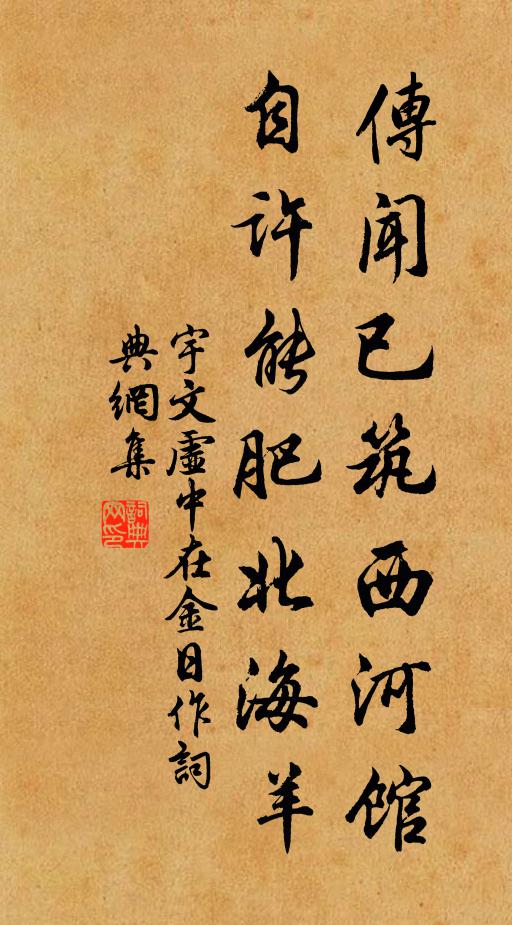 傳聞已筑西河館
自许能肥北海羊
宇文虛中在金日作詞
典網集
詞典网印